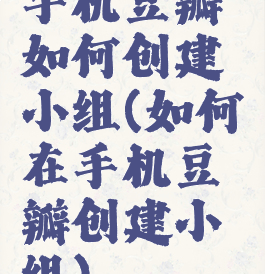 手机豆瓣
如何创建
小组(如何
在手机豆
瓣创建小
组)